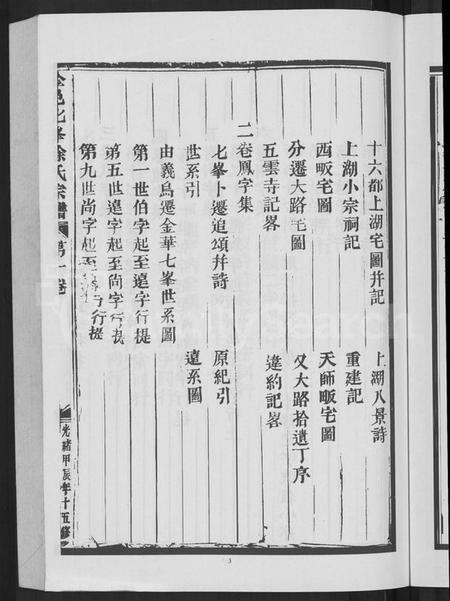 十六都上湖宅圖幷記 上湖八景詩
上湖小宗祠記 重建記
西畈宅圖 天師畈宅圖
分遷大路宅圖 又大路拾遺丁序
五雲寺記畧 違約記畧
二卷鳳字集
七峯卜遷追頌幷詩 原紀引
世系引 遠系圖
由義烏遷金華七峯世系圖
第一世伯字起至遠字行提
第五世遠字起至尙字行提
第九世尙字起至 字行提
金邑七峯徐氏宗譜 第一卷 光緒甲辰年十五修
3